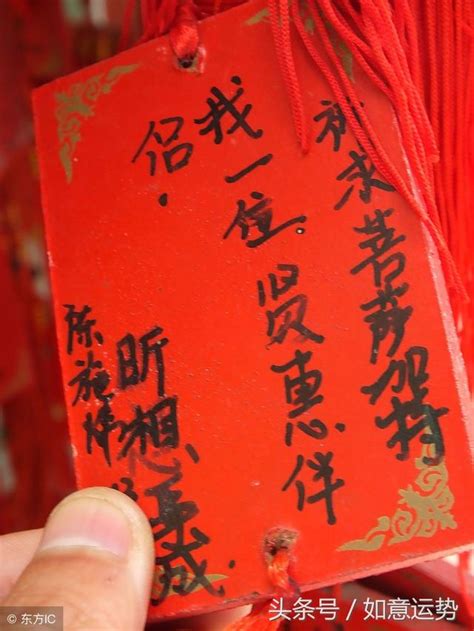 祈求菩萨加持
我一位.贤惠伴
侣.
昕想成.
陈施
© 东方IC
头条号 / 如意运势